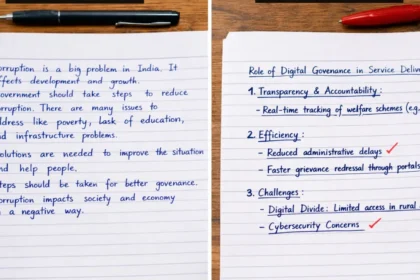 orruption is a big problem in India. It
ffects development and growth.
overnment should take steps to reduce
orruption. There are many issues to
ddress like poverty, lask of education,
nd infrastructure problems.
olutions are needed to improve the situation
nd help people.
teps should be taken for better govenance.
orruption impacts society and economy
n a negative way.
Role of Digital Governance in Service Deliver
1. Transparency & Accountability:
- Real-time tracking of welfare schemes (e.g.
2. Efficiency:
- Reduced administrative delays
- Faster grievance redressal through portals
3. Challenges:
- Digital Divide: Limited access in rural
- Cybersecurity Concerns